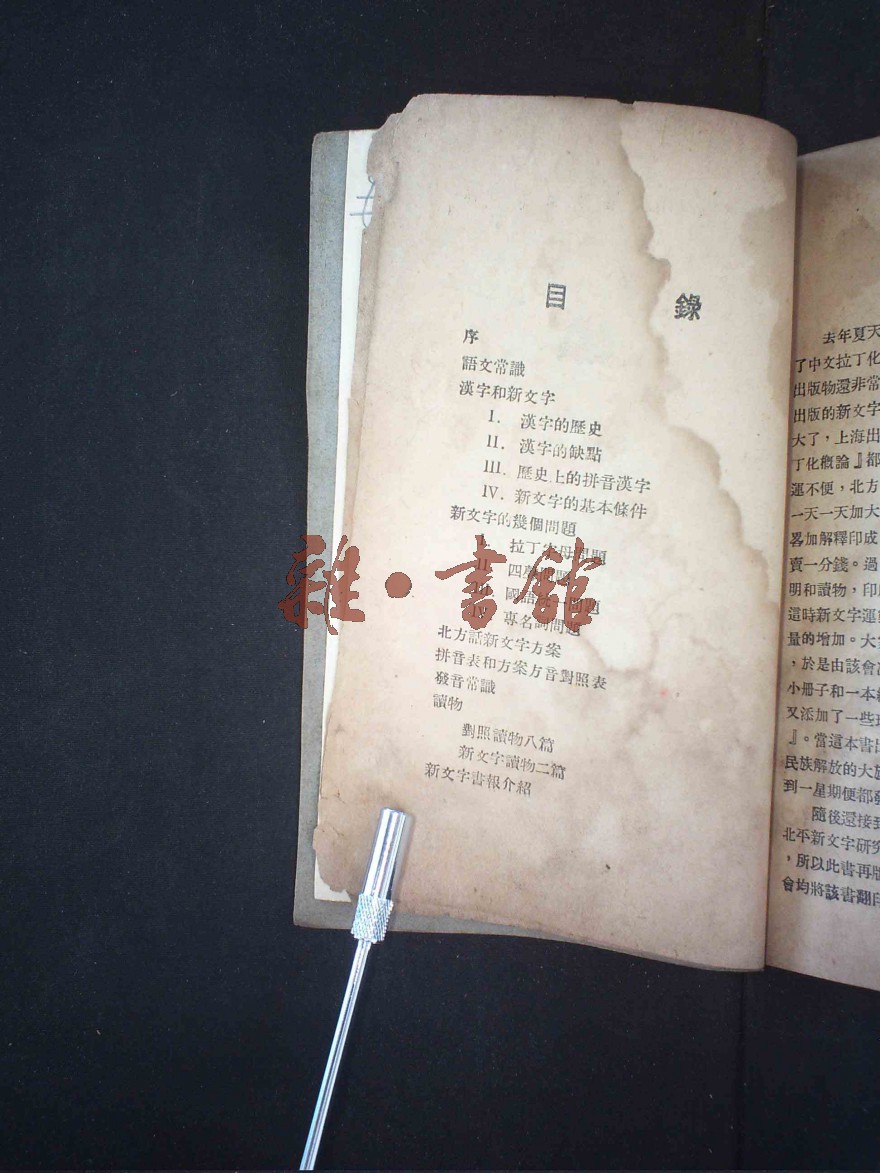 目 錄
序
語文常識
漢字和新文字
I. 漢字的歷史
II. 漢字的缺點
III. 歷史上的拼音漢字
IV. 新文字的基本條件
新文字的幾個問題
I. 拉丁字母問題
II 四聲問題
III 國語 問題
IV 專名詞問題
北方話新文字方案
拼音表和方案方音對照表
發音常識
讀物
對照讀物八篇
新文字讀物二篇
新文字書報介紹
雜·書館
去年夏天
了中文拉丁化
出版物還非常
出版的新文字
大了，上海出
丁化概論』都
運不便，北方
一天一天加大
畧加解釋印成
賣一分錢。過
明和讀物，印
這時新文字運
量的增加。大
，於是由該會
小册子和一本
又添加了一些
』。當這本書
民族解放的大
到一星期便都
隨後還接到
北平新文字研究
，所以此書再版
會均將該書翻印